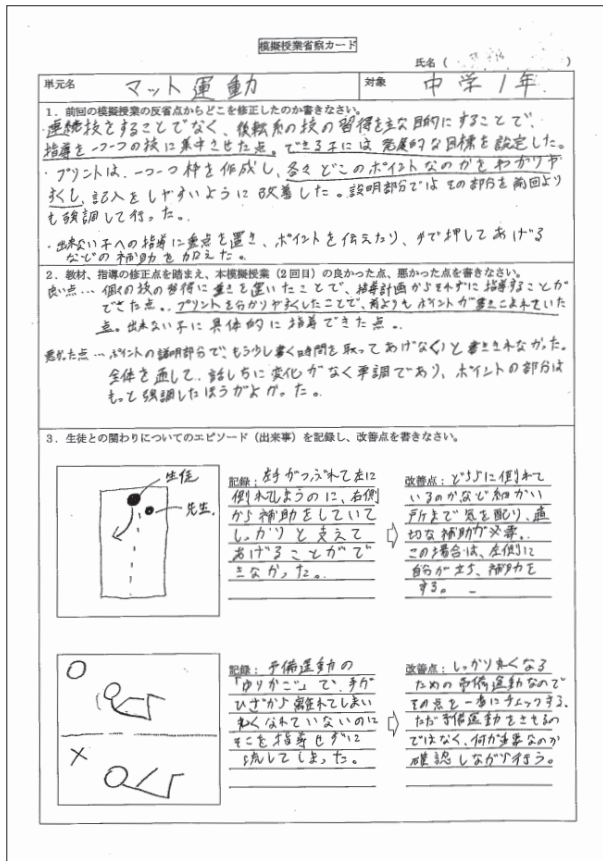 模擬授業省察カード
氏名（　　　）
単元名 マット運動 対象 中学1年
1．前回の模擬授業の反省点からどこを修正したのか書きなさい。
・連続技をすることでなく、後転系の技の習得を主な目的にすることで、
指導を一つ一つの技に集中させた点。できる子には発展的な目標を設定した。
・プリントは、一つ一つ枠を作成し、各々どこのポイントなのかをわかりや
すくし、記入をしやすいように改善した。説明部分ではその部分を前回より
も強調して行った。
・出来ない子への指導に重点を置き、ポイントを伝えたり、手で押してあげる
などの補助を加えた。
2．教材、指導の修正点を踏まえ、本模擬授業（2回目）の良かった点、悪かった点を書きなさい。
良い点…個々の技の習得に重きを置いたことで、指導計画からそれずに指導することが
できた点。プリントを分かりやすくしたことで、前よりもポイントが書きこまれていた
点。出来ない子に具体的に指導できた点。
悪かった点…ポイントの説明部分で、もう少し書く時間を取ってあげないと書ききれなかった。
全体を通して、話し方に変化がなく平調であり、ポイントの部分は
もっと強調したほうがよかった。
3．生徒との関わりについてのエピソード（出来事）を記録し、改善点を書きなさい。
生徒
先生
記録：左手がつぶれて左に
倒れてしまうのに、右側
から補助をしていて
しっかりと支えて
あげることがで
きなかった。
改善点：どちらに倒れて
いるのかなど細かい
所まで気を配り、適
切な補助が必要。
この場合は、左側に
自分が立ち、補助を
する。
○
×
記録：予備運動の
「ゆりかご」で、手が
ひざから離れてしまい
丸くなれていないのに
そこを指導せずに
流してしまった。
改善点：しっかり丸くなる
ための予備運動なので
その点を一番にチェックする。
ただ予備運動をさせるの
ではなく、何が必要なのか
確認しながら行う。